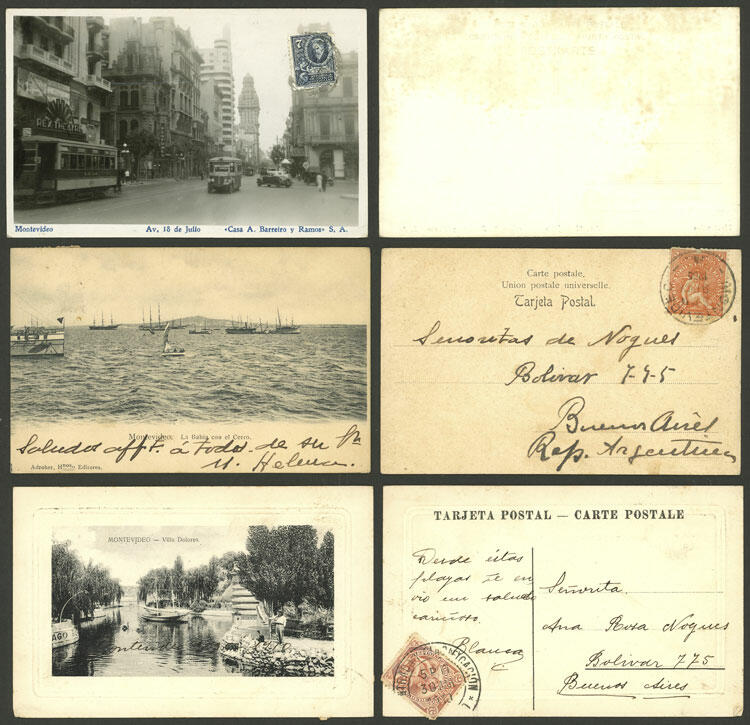 REX THEATRE
Montevideo Av. 18 de Julio «Casa A. Barreiro y Ramos» S. A.
Montevideo. La Bahía con el Cerro.
Saludos afft. á todos de su
M. Helena.
Adroher, Hnos. Editores.
Carte postale.
Union postale universelle.
Tarjeta Postal.
Señoritas de Nogués
Bolivar 775
Buenos Aires
Rep. Argentina
MONTEVIDEO — Villa Dolores
AGO
TARJETA POSTAL — CARTE POSTALE
Desde éstas
playas te en
vio un saludo
cariñoso
Blanca
Señorita.
Ana Rosa Nogues
Bolivar 775
Buenos Aires